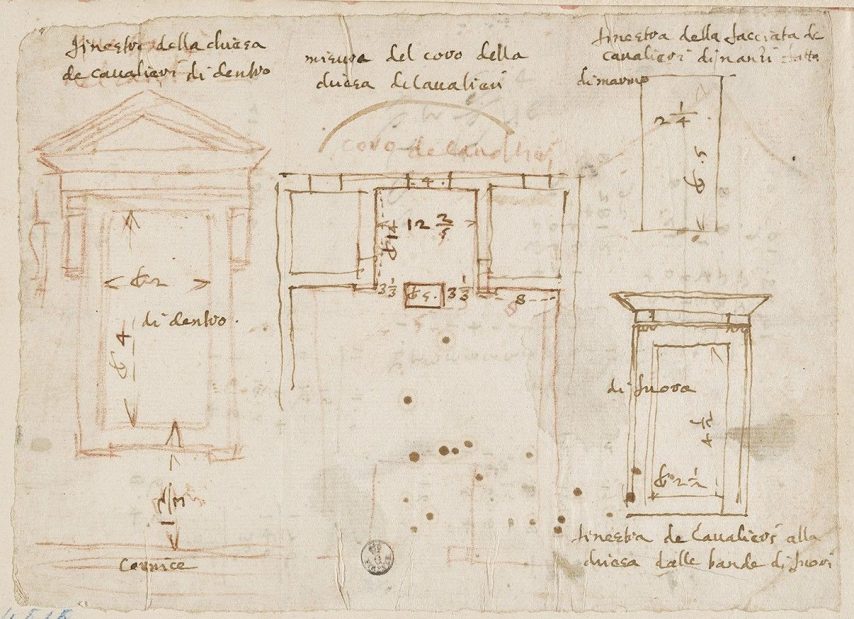 finestre della chiesa
de cavalieri di dentro
misura del coro della
chiesa de Cavalieri
finestra della facciata de
cavalieri dinanti
di marmo
coro de cavalieri
2 1/4
5
4
12 2/5
12
2
3 1/3
5
3 1/3
8
di dentro
4
di fuora
4 1/2
2 1/2
Cornice
finestra de Cavalieri alla
chiesa dalle bande di fuori